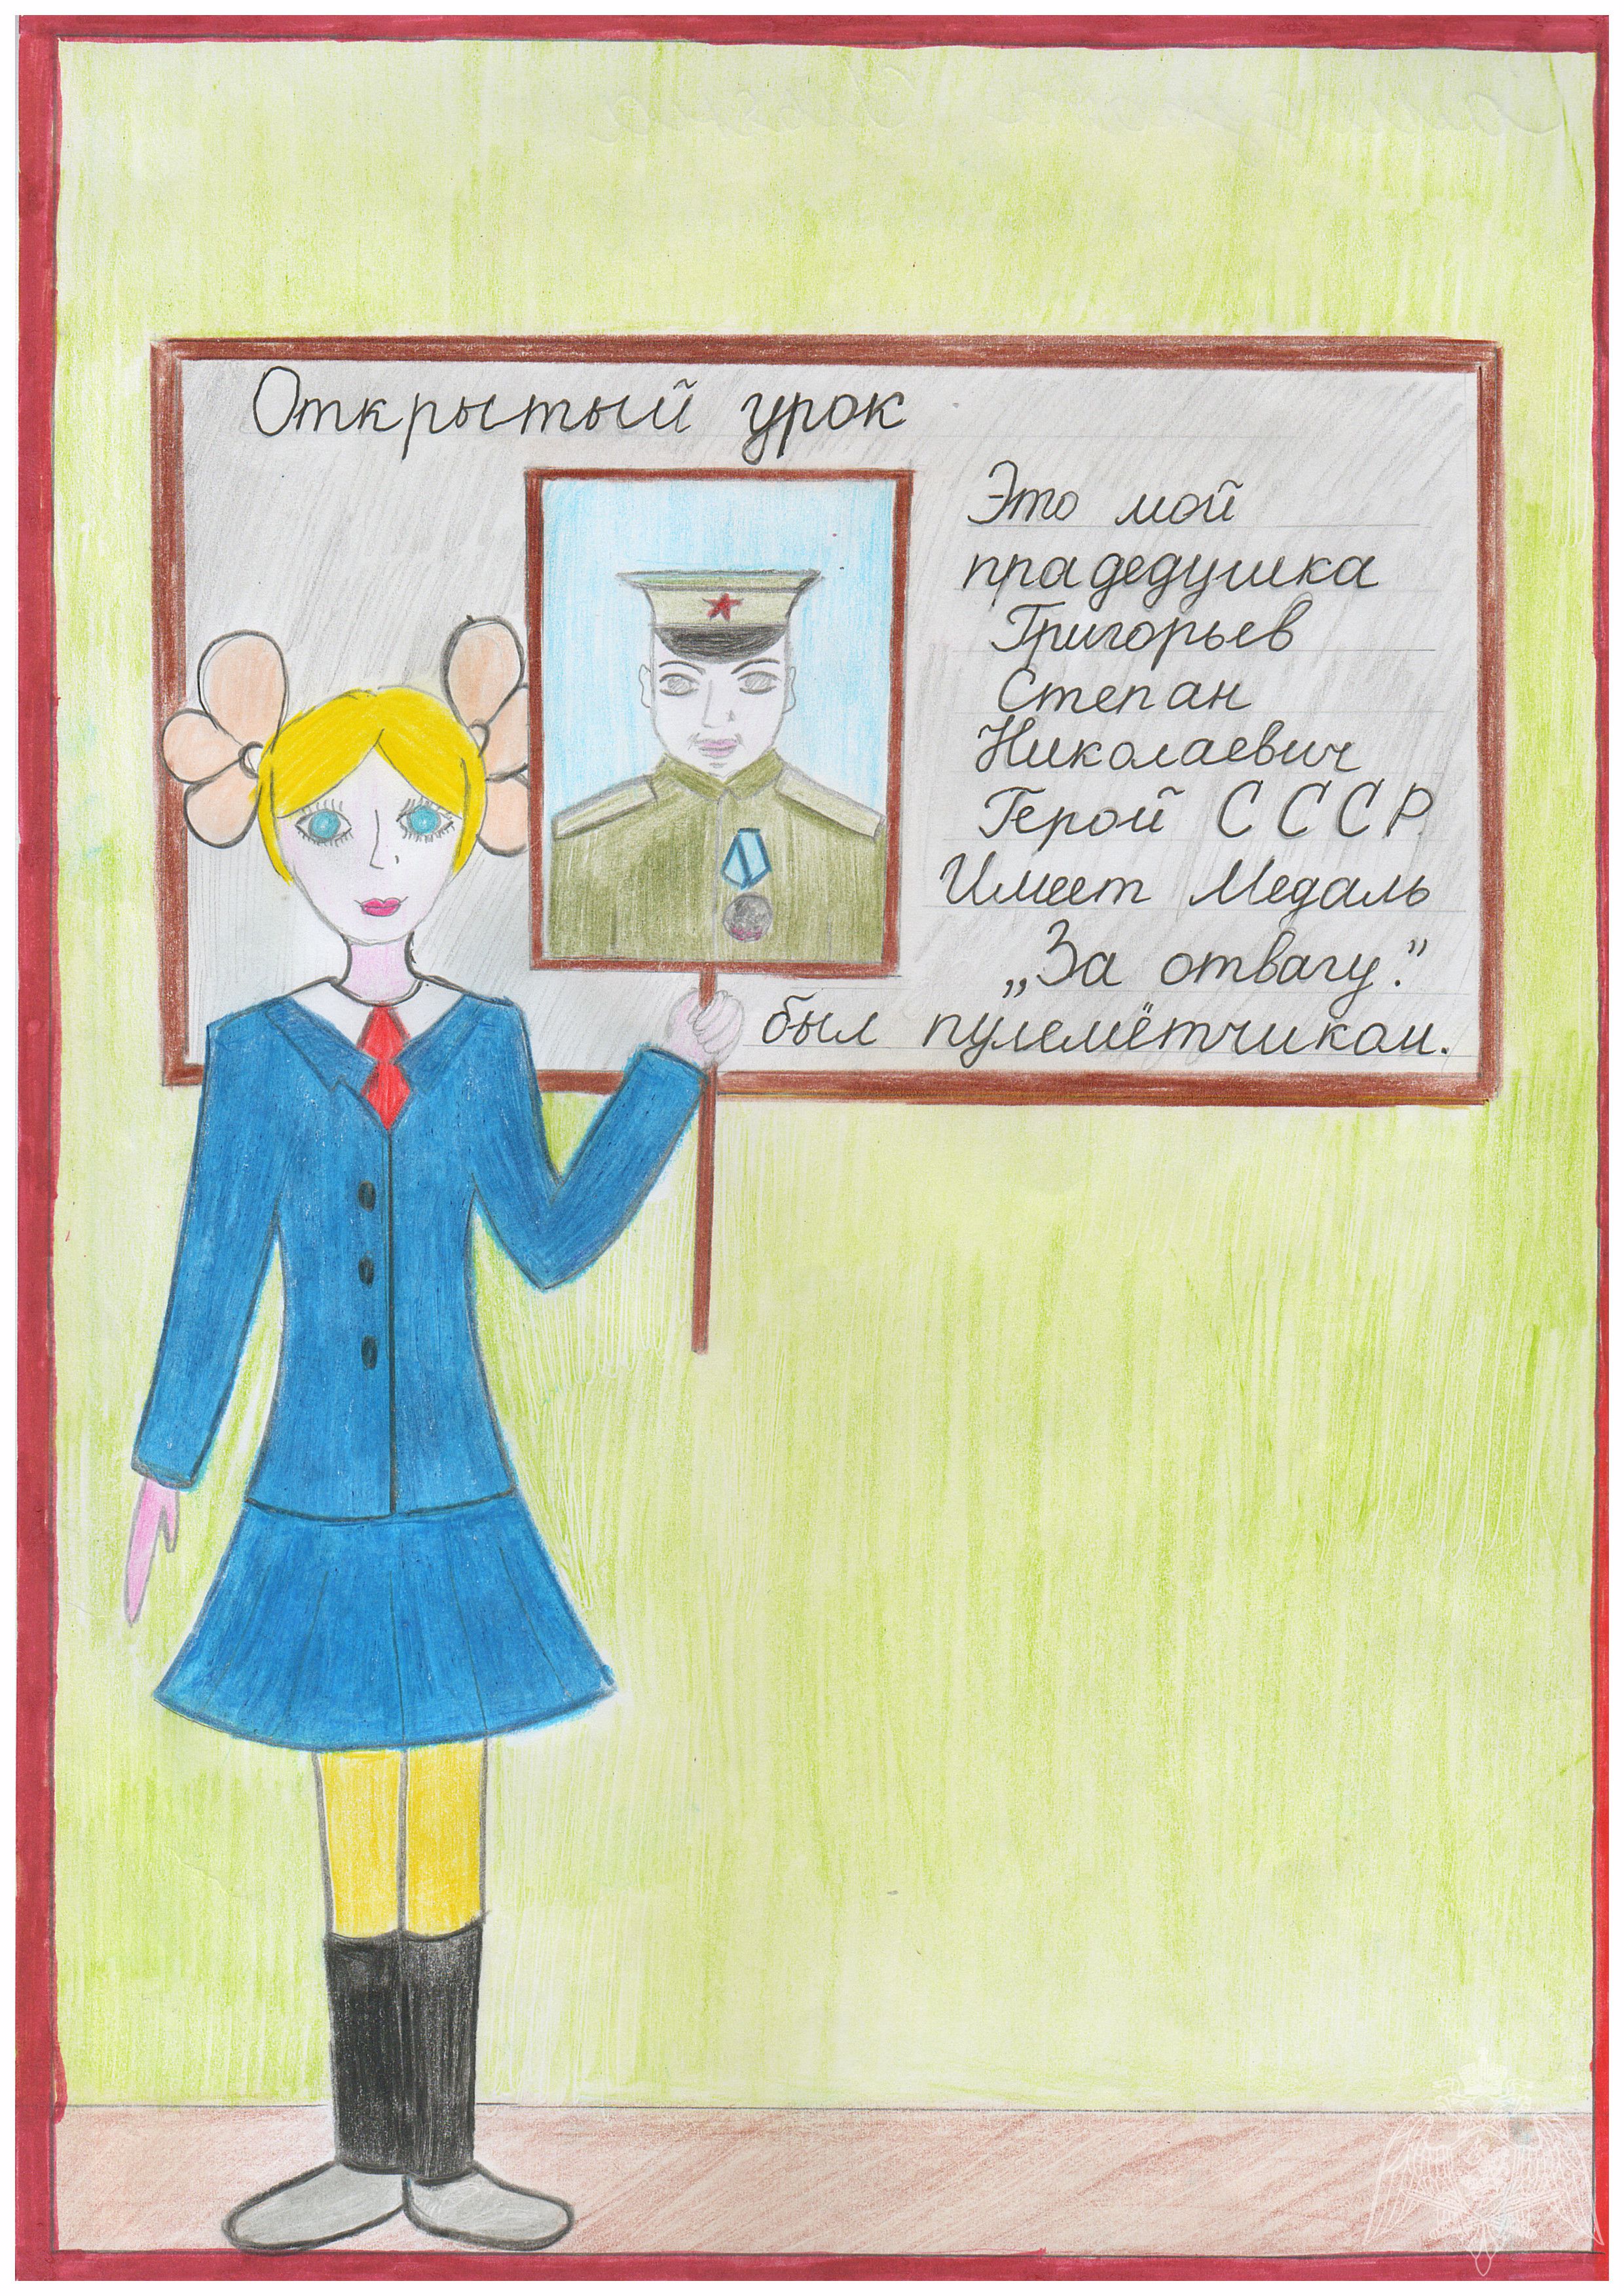 Открытый урок
Это мой
прадедушка
Григорьев
Степан
Николаевич
Герой СССР
Имеет Медаль
„За отвагу.”
был пулемётчиком.